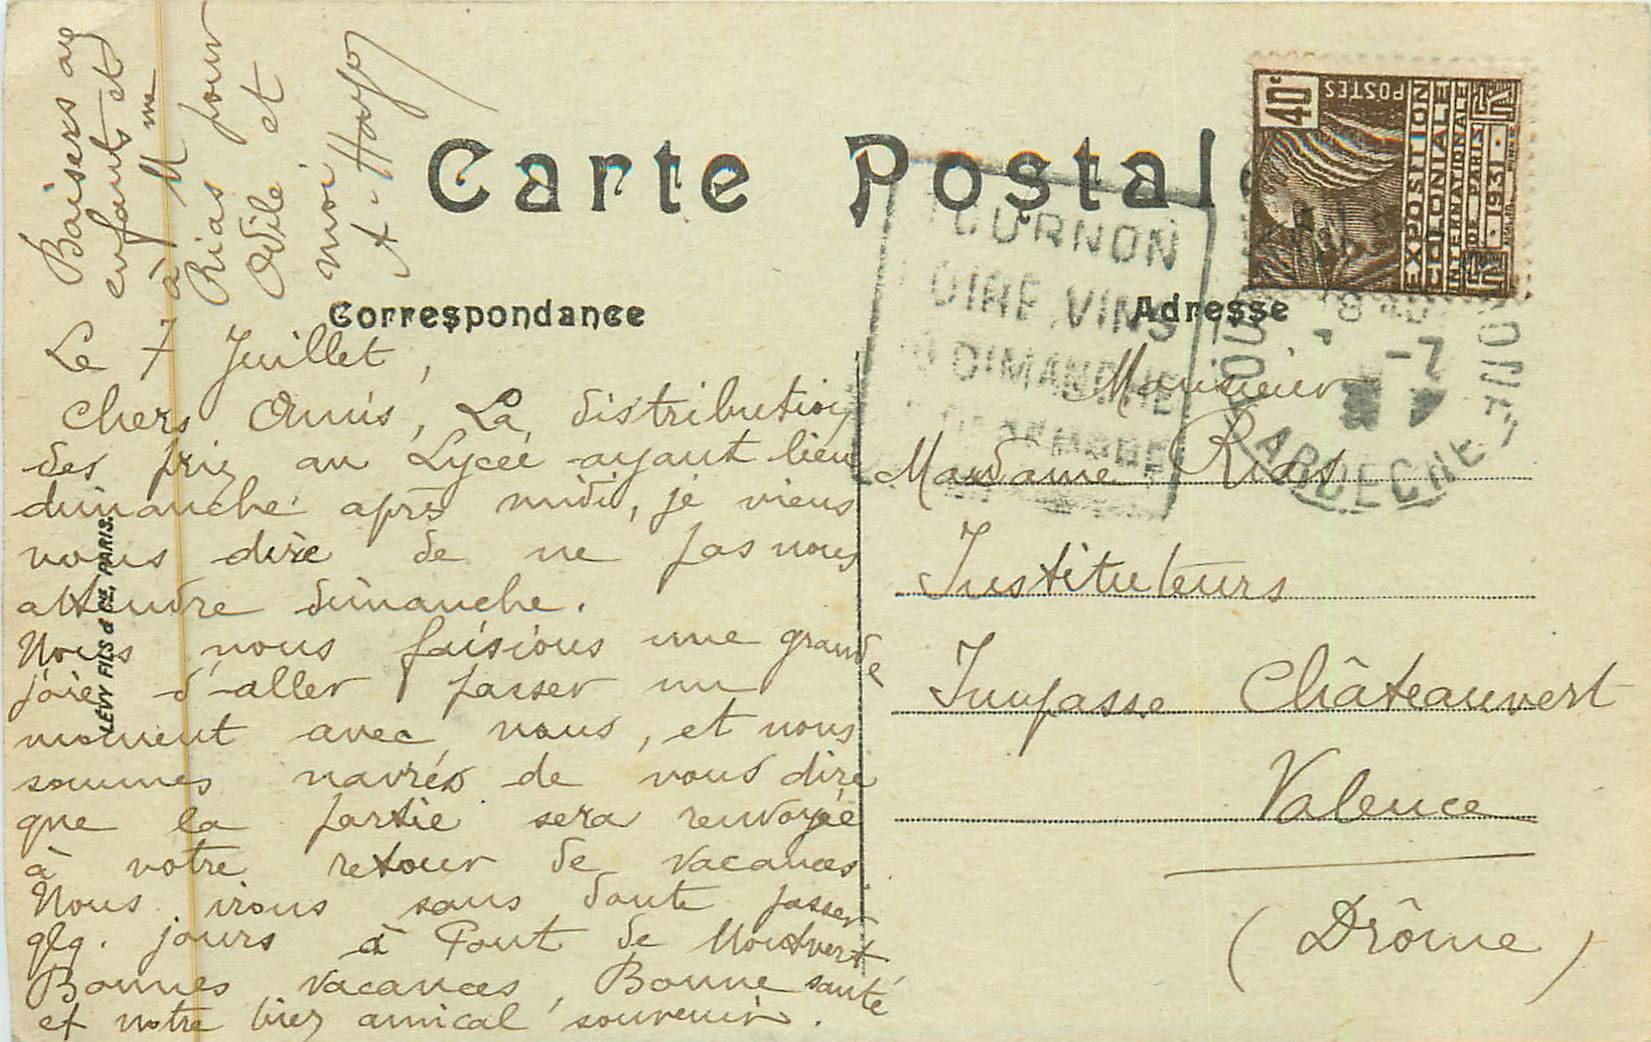 Baisers aux
enfants et
à M me
Rias pour
Odile et
moi
A. Hayo
Carte Postal
Correspondance
Adresse
40c
POSTES
EXPOSITION
COLONIALE
INTERNATIONALE
DE PARIS
1931
TOURNON
FOIRE VINS
DIMANCHE
ARDECHE
-7
Le 7 Juillet,
Chers Amis, La distribution
des prix au Lycée ayant lieu
dimanche après midi, je viens
vous dire de ne pas nous
attendre dimanche.
Nous nous faisions une grande
joie d'aller passer un
moment avec vous, et nous
sommes navrés de vous dire
que la partie sera renvoyée
à votre retour de vacances.
Nous irons sans doute passer
qlq. jours à Pont de Montvert
Bonnes vacances, Bonne santé
et notre bien amical souvenir.
LÉVY FILS & CIE, PARIS.
Monsieur
Madame Rias
Instituteurs
Impasse Châteauvert
Valence
(Drôme)